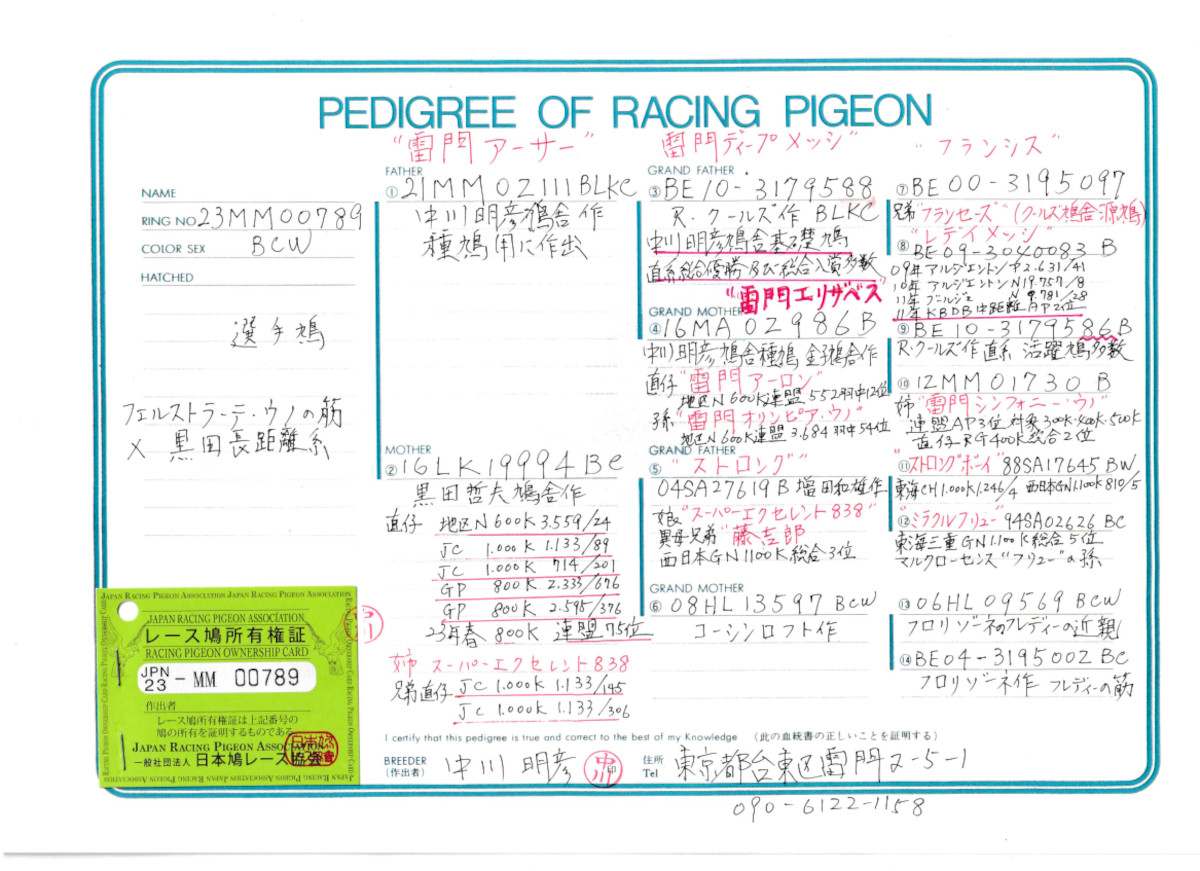 PEDIGREE OF RACING PIGEON
NAME
RING NO 23MM00789
COLOR SEX BCW
HATCHED
選手鳩
フェルストラーテ・ウノの筋
× 黒田長距離系
"雷門アーサー"
FATHER
① 21MM02111BLKC
中川明彦鳩舎作
種鳩用に作出
MOTHER
② 16LK19994BC
黒田哲夫鳩舎作
直仔 地区N600K 3.559/24
JC 1.000K 1.133/89
JC 1.000K 714/201
GP 800K 2.333/676
GP 800K 2.595/376
23年春 800K 連盟75位
姉 スーパーエクセレント838
兄弟直仔 JC 1.000K 1.133/145
JC 1.000K 1.133/306
雷門ディープメッシ"
GRAND FATHER
③ BE10-3179588
R.クールズ作 BLKC
中川明彦鳩舎基礎鳩
直系総合優勝及び総合入賞多数
"雷門エリザベス"
GRAND MOTHER
④ 16MA02986B
中川明彦鳩舎種鳩 金子鳩舎作
直仔"雷門アーロン"
地区N600K連盟552羽中12位
孫"雷門オリンピア・ウノ"
地区N600K連盟3.684羽中54位
GRAND FATHER
⑤ "ストロング"
04SA27619B 増田和雄作
娘"スーパーエクセレント838"
異母兄弟"藤吉郎"
西日本GN1100K総合3位
GRAND MOTHER
⑥ 08HL13597 BCW
コーシンロフト作
"フランシス"
⑦ BE00-3195097
兄弟"フランセーズ"(クールズ鳩舎源鳩)
"レディメッシ"
⑧ BE09-3040083 B
09年アルジェントンP2.631/41
10年アルジェントンN19.757/8
11年ブールジェN 9.781/28
11年KBDB中距離AP2位
⑨ BE10-3179586B
R.クールズ作直系 活躍鳩多数
⑩ 12MM01730B
姉"雷門シンフォニー・ウノ"
連盟AP3位対象300K・400K・500K
直仔RG400K総合2位
⑪ "ストロングボーイ"88SA17645 BW
東海CH1.000K1.246/4 西日本GN1.100K810/5
⑫ "ミラクルフリュー"94SA02626 BC
東海三重GN1.100K総合5位
マルクローセンス"フリュー"の孫
⑬ 06HL09569 BCW
フロリゾーネのフレディーの近親
⑭ BE04-3195002 BC
フロリゾーネ作 フレディーの筋
JAPAN RACING PIGEON ASSOCIATION JAPAN RACING PIGEON ASSOCIATION
JAPAN RACING PIGEON ASSOCIATION
レース鳩所有権証
RACING PIGEON OWNERSHIP CARD
JPN
23 - MM 00789
作出者
レース鳩所有権証は上記番号の
鳩の所有を証明するものである
JAPAN RACING PIGEON ASSOCIATION
一般社団法人 日本鳩レース協会
I certify that this pedigree is true and correct to the best of my Knowledge (此の血統書の正しいことを証明する)
BREEDER
(作出者) 中川明彦 中川印
住所
Tel 東京都台東区雷門2-5-1
090-6122-1158